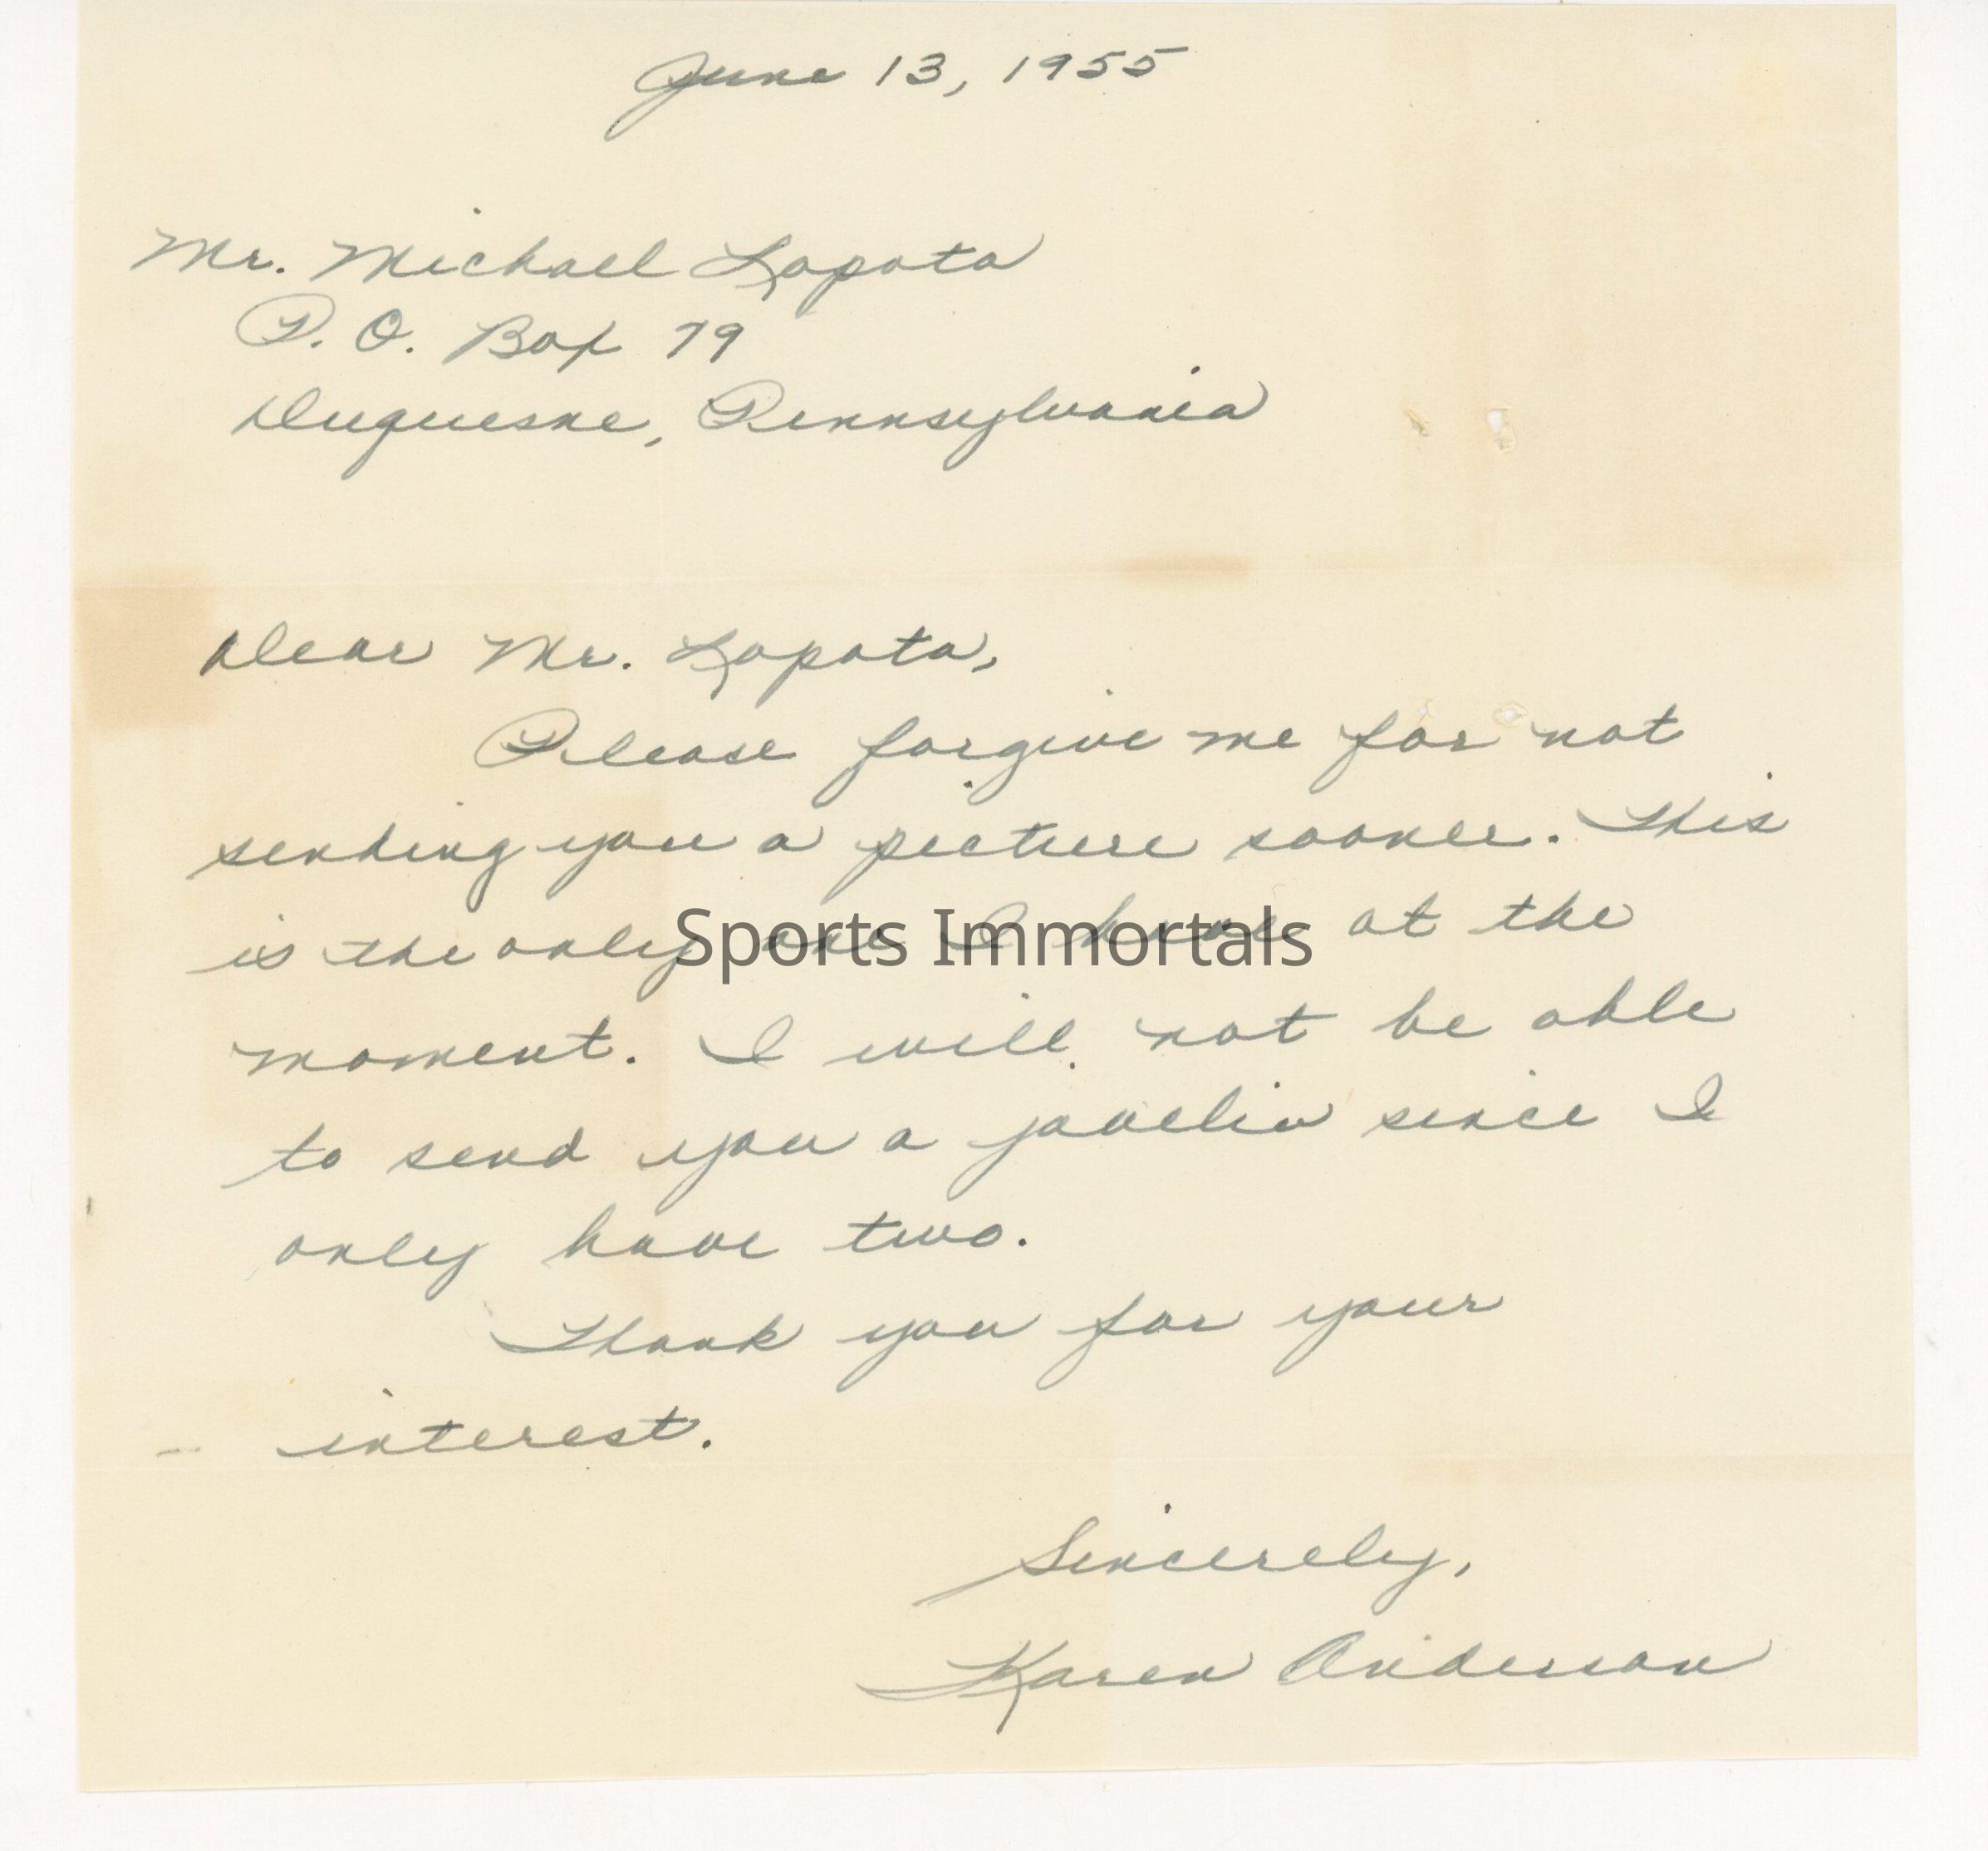 June 13, 1955
Mr. Michael Lopata
P. O. Box 79
Duquesne, Pennsylvania
Dear Mr. Lopata,
Please forgive me for not
sending you a picture sooner. This
is the only one I have at the
Sports Immortals
moment. I will not be able
to send you a javelin since I
only have two.
Thank you for your
interest.
Sincerely,
Karen Anderson